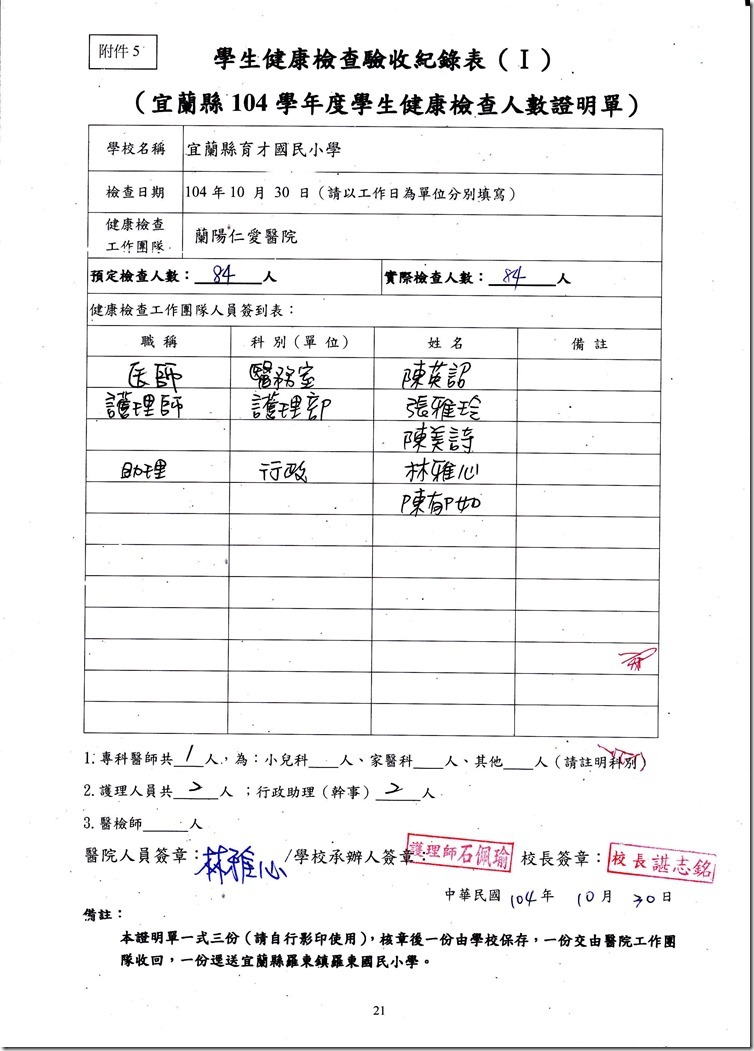 附件 5
學生健康檢查驗收紀錄表（Ⅰ）
（宜蘭縣 104 學年度學生健康檢查人數證明單）
學校名稱 宜蘭縣育才國民小學
檢查日期 104 年 10 月 30 日（請以工作日為單位分別填寫）
健康檢查工作團隊 蘭陽仁愛醫院
預定檢查人數：84人 實際檢查人數：84人
健康檢查工作團隊人員簽到表：
職稱 科別（單位） 姓名 備註
医師 醫務室 陳英詔
護理師 護理部 張雅玲
陳美詩
助理 行政 林雅心
陳郁如
1. 專科醫師共1人，為：小兒科___人、家醫科___人、其他___人（請註明科別）
2. 護理人員共2人；行政助理（幹事）2人
3. 醫檢師_____人
醫院人員簽章：林雅心/學校承辦人簽章：護理師石佩瑜 校長簽章：校長諶志銘
中華民國 104 年 10 月 30 日
備註：
本證明單一式三份（請自行影印使用），核章後一份由學校保存，一份交由醫院工作團
隊收回，一份逕送宜蘭縣羅東鎮羅東國民小學。
21